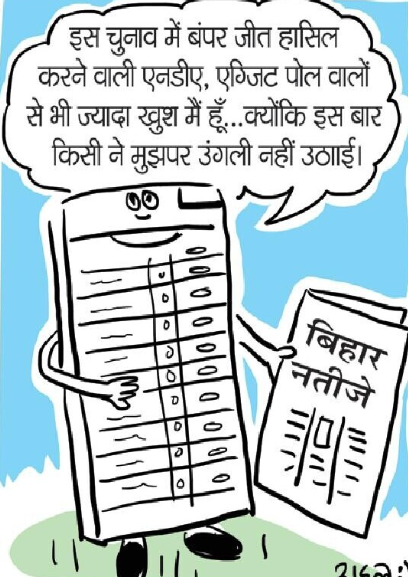 इस चुनाव में बंपर जीत हासिल
करने वाली एनडीए, एग्जिट पोल वालों
से भी ज्यादा खुश मैं हूँ...क्योंकि इस बार
किसी ने मुझपर उंगली नहीं उठााई।
बिहार
नतीजे